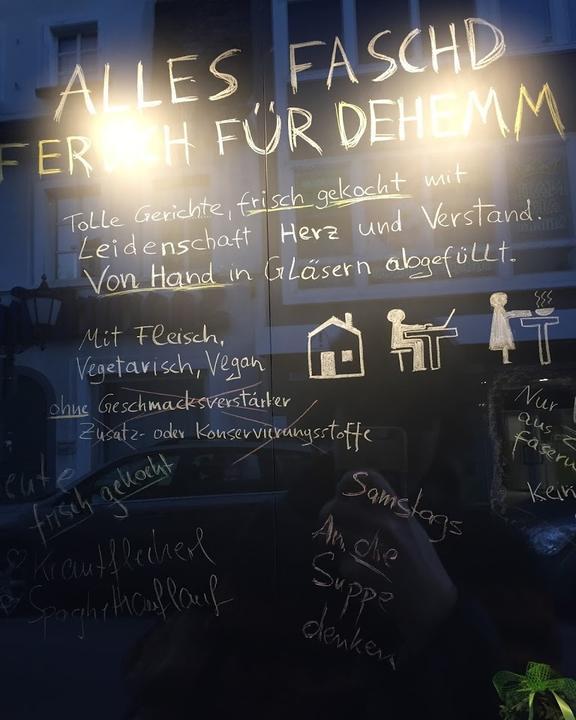 ALLES FASCHD
FERDICH FÜR DEHEMM
Tolle Gerichte, frisch gekocht mit
Leidenschaft Herz und Verstand.
Von Hand in Gläsern abgefüllt.
Mit Fleisch,
Vegetarisch, Vegan
ohne Geschmacksverstärker
Zusatz- oder Konservierungsstoffe
Nur
aus
Kein
frisch gekocht
Krautfleckerl
Spaghettiauflauf
Samstags
An die
Suppe
denken